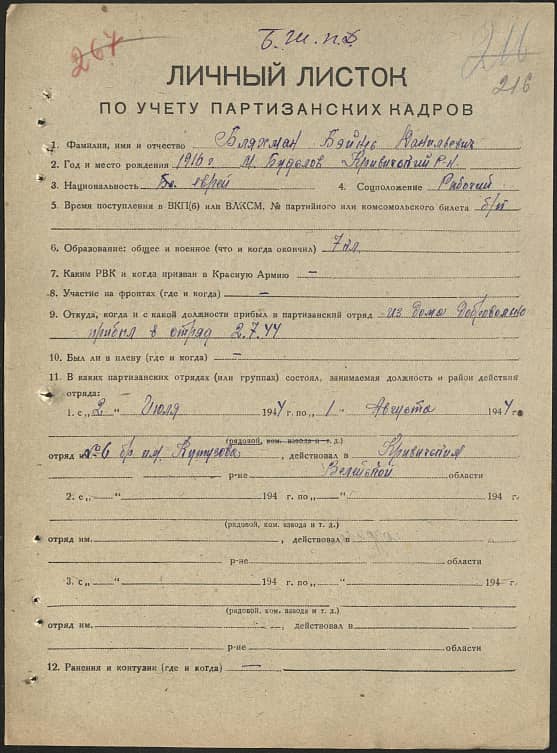 Б.Ш.П.Д
267
216
216
ЛИЧНЫЙ ЛИСТОК
ПО УЧЕТУ ПАРТИЗАНСКИХ КАДРОВ
1. Фамилия, имя и отчество Бляхман
2. Год и место рождения 1916 г м. Будслов Кривичский Р-н
3. Национальность Бел. еврей 4. Соцположение Рабочий
5. Время поступления в ВКП(б) или ВЛКСМ, № партийного или комсомольского билета б/п
6. Образование: общее и военное (что и когда окончил) 7 кл.
7. Каким РВК и когда призван в Красную Армию —
8. Участие на фронтах (где и когда) —
9. Откуда, когда и с какой должности прибыл в партизанский отряд из дома добровольно
прибыл в отряд 2.7.44
10. Был ли в плену (где и когда) —
11. В каких партизанских отрядах (или группах) состоял, занимаемая должность и район действия
отряда:
1. с „2“ Июля 1944 г. по „1“ Августа 1944 г.
(рядовой, ком. взвода и т. д.)
отряд №6 бр. им. Кутузова, действовал в Кривичским
р-не Вилейской области
2. с „ “ 194 г. по „ “ 194 г.
(рядовой, ком. взвода и т. д.)
отряд им. , действовал в
р-не области
3. с „ “ 194 г. по „ “ 194 г.
(рядовой, ком. взвода и т. д.)
отряд им. , действовал в
р-не области
12. Ранения и контузии (где и когда) —